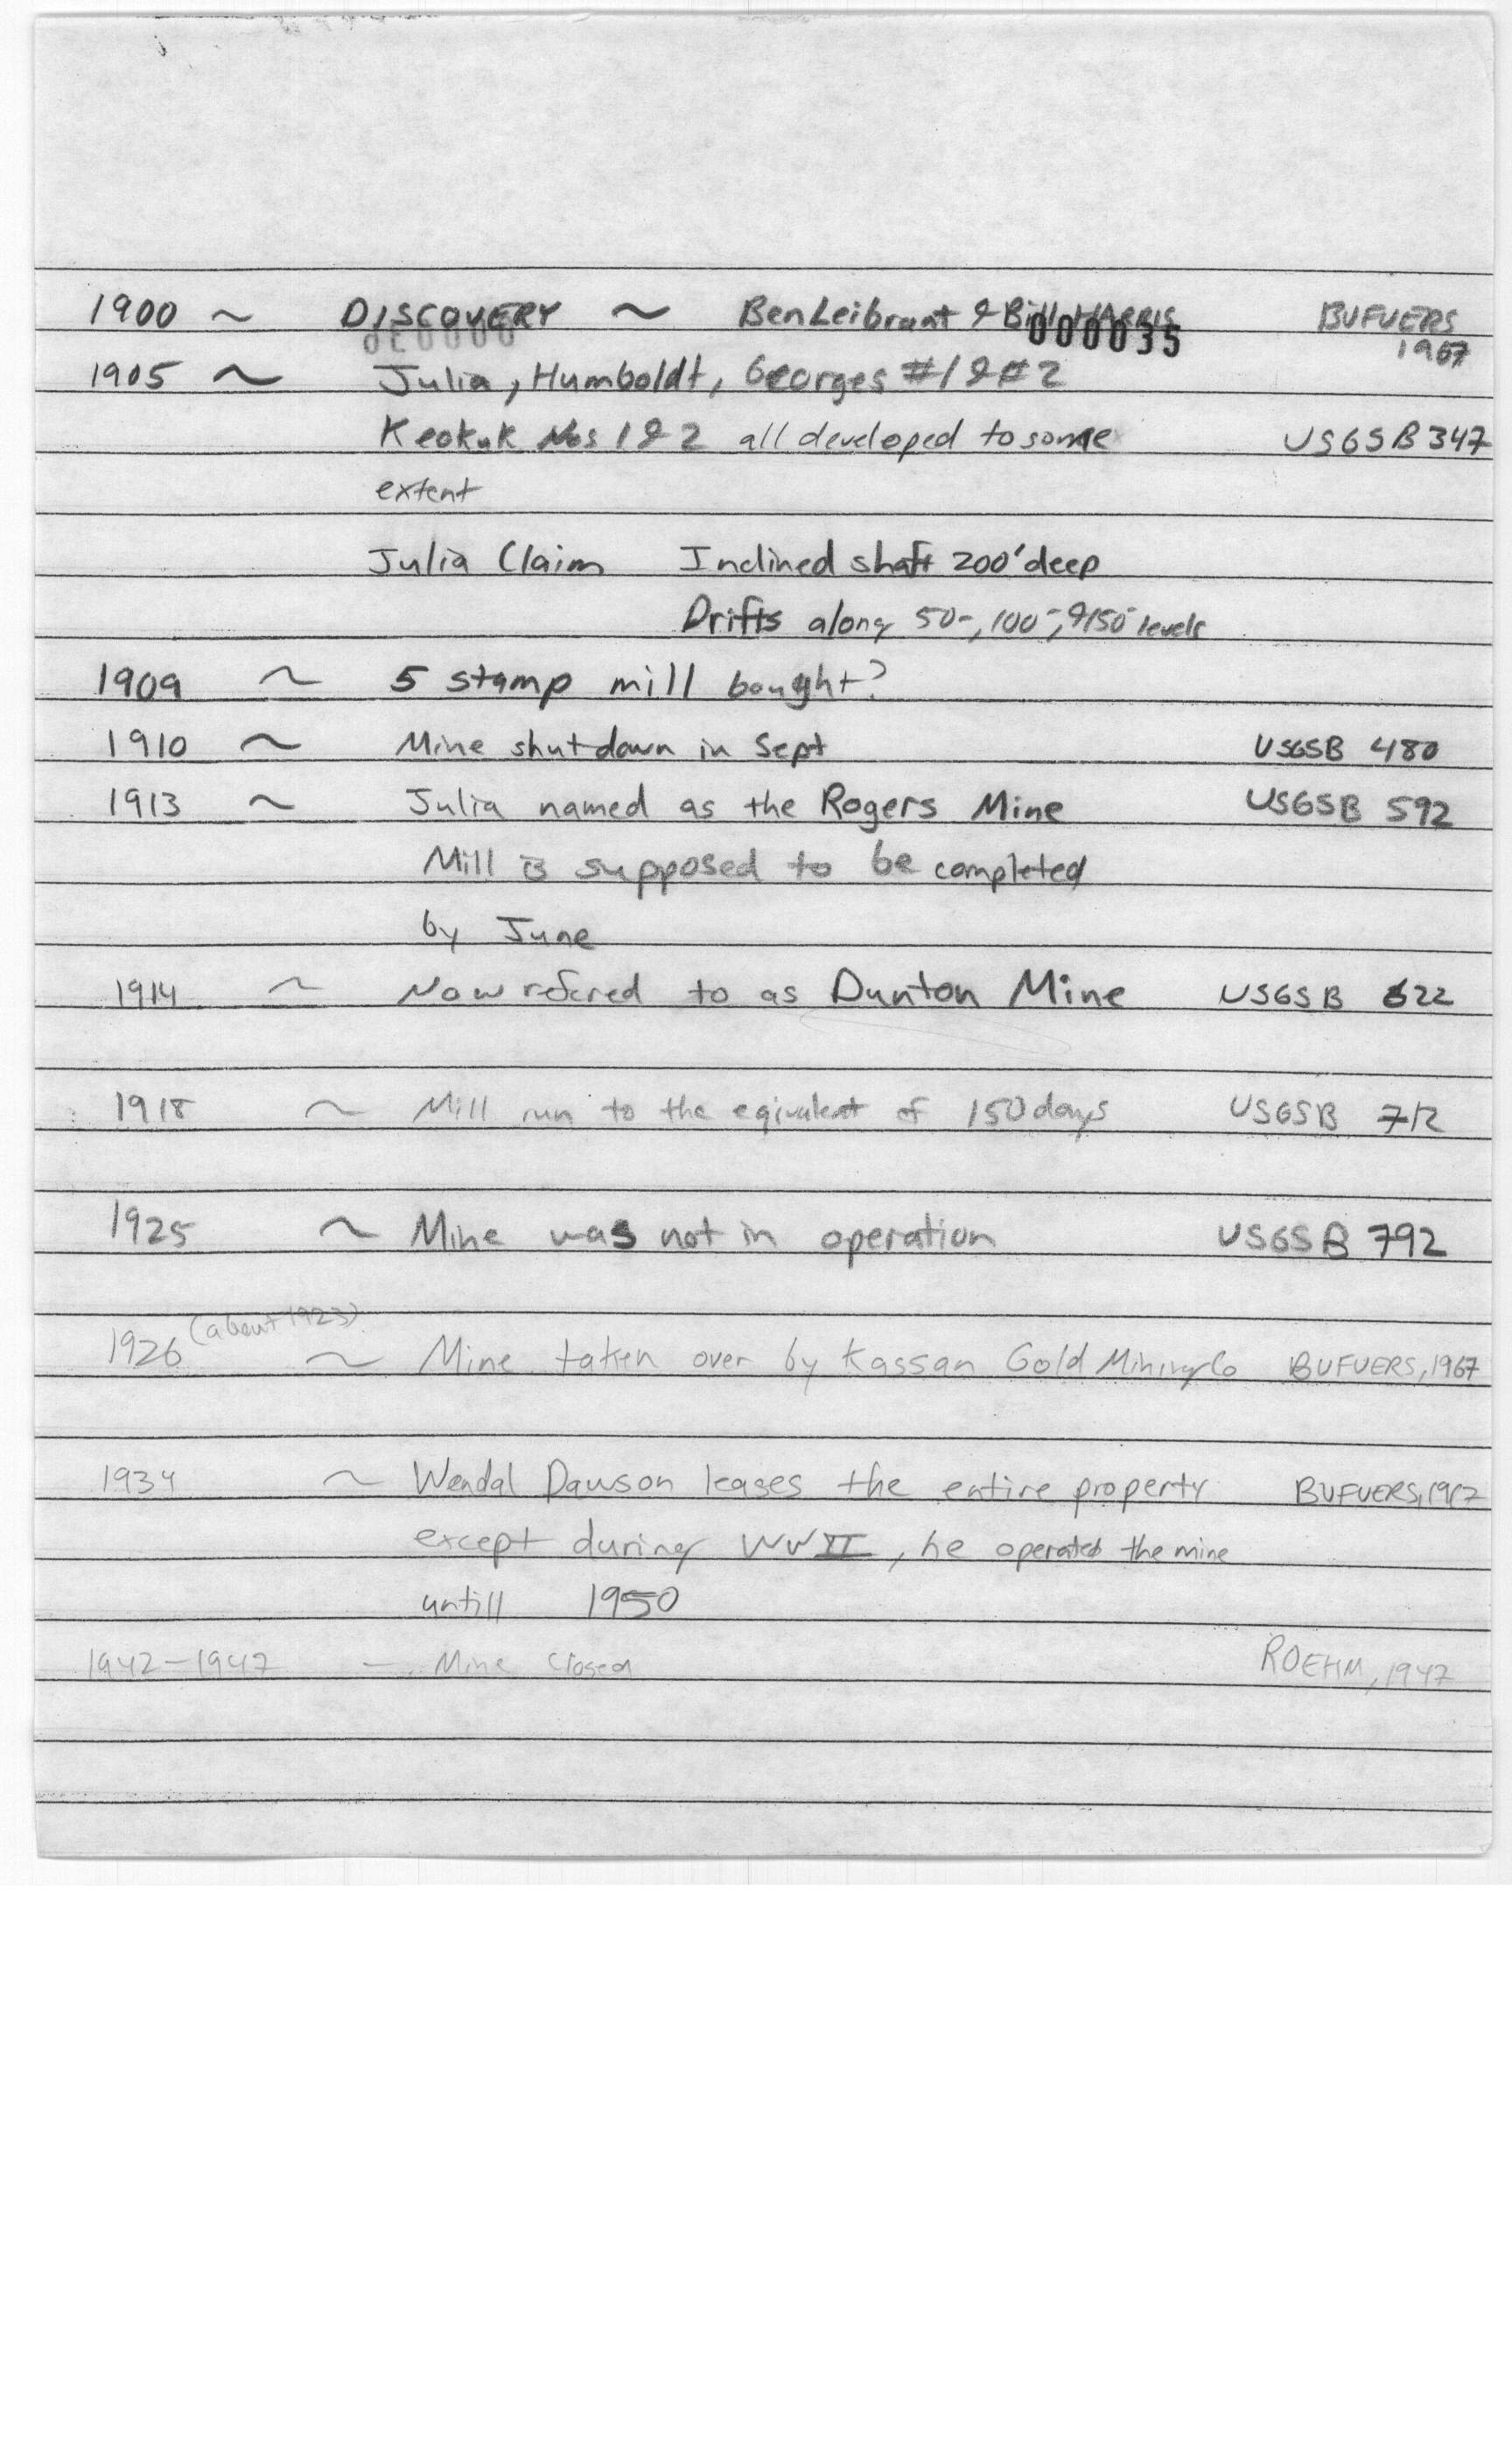 1900 ~ DISCOVERY ~ Ben Leibrant & Bill HARRIS BUFVERS
000035
1967
1905 ~ Julia, Humboldt, Georges #1 & #2
Keokuk Nos 1 & 2 all developed to some USGSB 347
extent
Julia Claim Inclined shaft 200' deep
Drifts along 50-, 100-, & 150- levels
1909 ~ 5 stamp mill bought?
1910 ~ Mine shutdown in Sept USGSB 480
1913 ~ Julia named as the Rogers Mine USGSB 592
Mill is supposed to be completed
by June
1914 ~ Now refered to as Dunton Mine USGSB 622
1918 ~ Mill run to the eqivalent of 150 days USGSB 712
1925 ~ Mine was not in operation USGSB 792
(about 1923)
1926 ~ Mine taken over by Kassan Gold Mining Co BUFVERS, 1967
1934 ~ Wendal Dawson leases the entire property BUFVERS, 1967
except during WWII, he operated the mine
untill 1950
1942-1947 - Mine Closed ROEHM, 1947